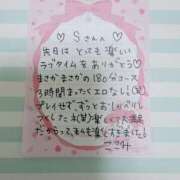 ♡ Sさんへ ♡
先日は とっても楽しい
ラブタイムを ありがとう♡
まさかまさかの180分コース
3時間まったくエロなし!(笑)
プレイせずずっとおしゃべり
しつくしたね(笑)楽しくて大満足
だからってまた
ここみ